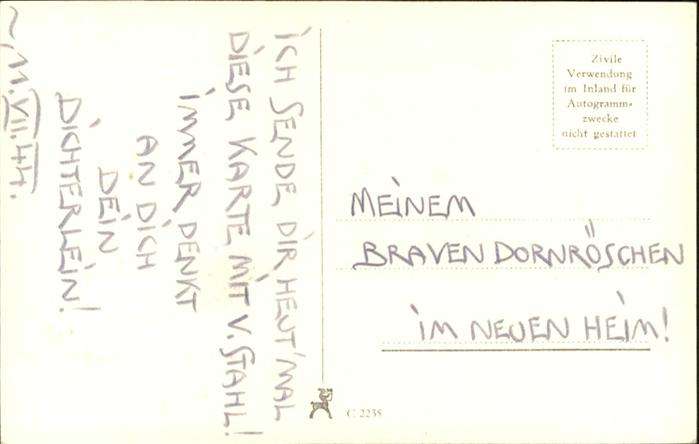 ICH SENDE DIR HEUT' MAL
DIESE KARTE MIT V. STAHL!
IMMER DENKT
AN DICH
DEIN
DICHTERLEIN!
~ 11. VII. 44.
Zivile
Verwendung
im Inland für
Autogramm-
zwecke
nicht gestattet
MEINEM
BRAVEN DORNRÖSCHEN
IM NEUEN HEIM!
C 2235